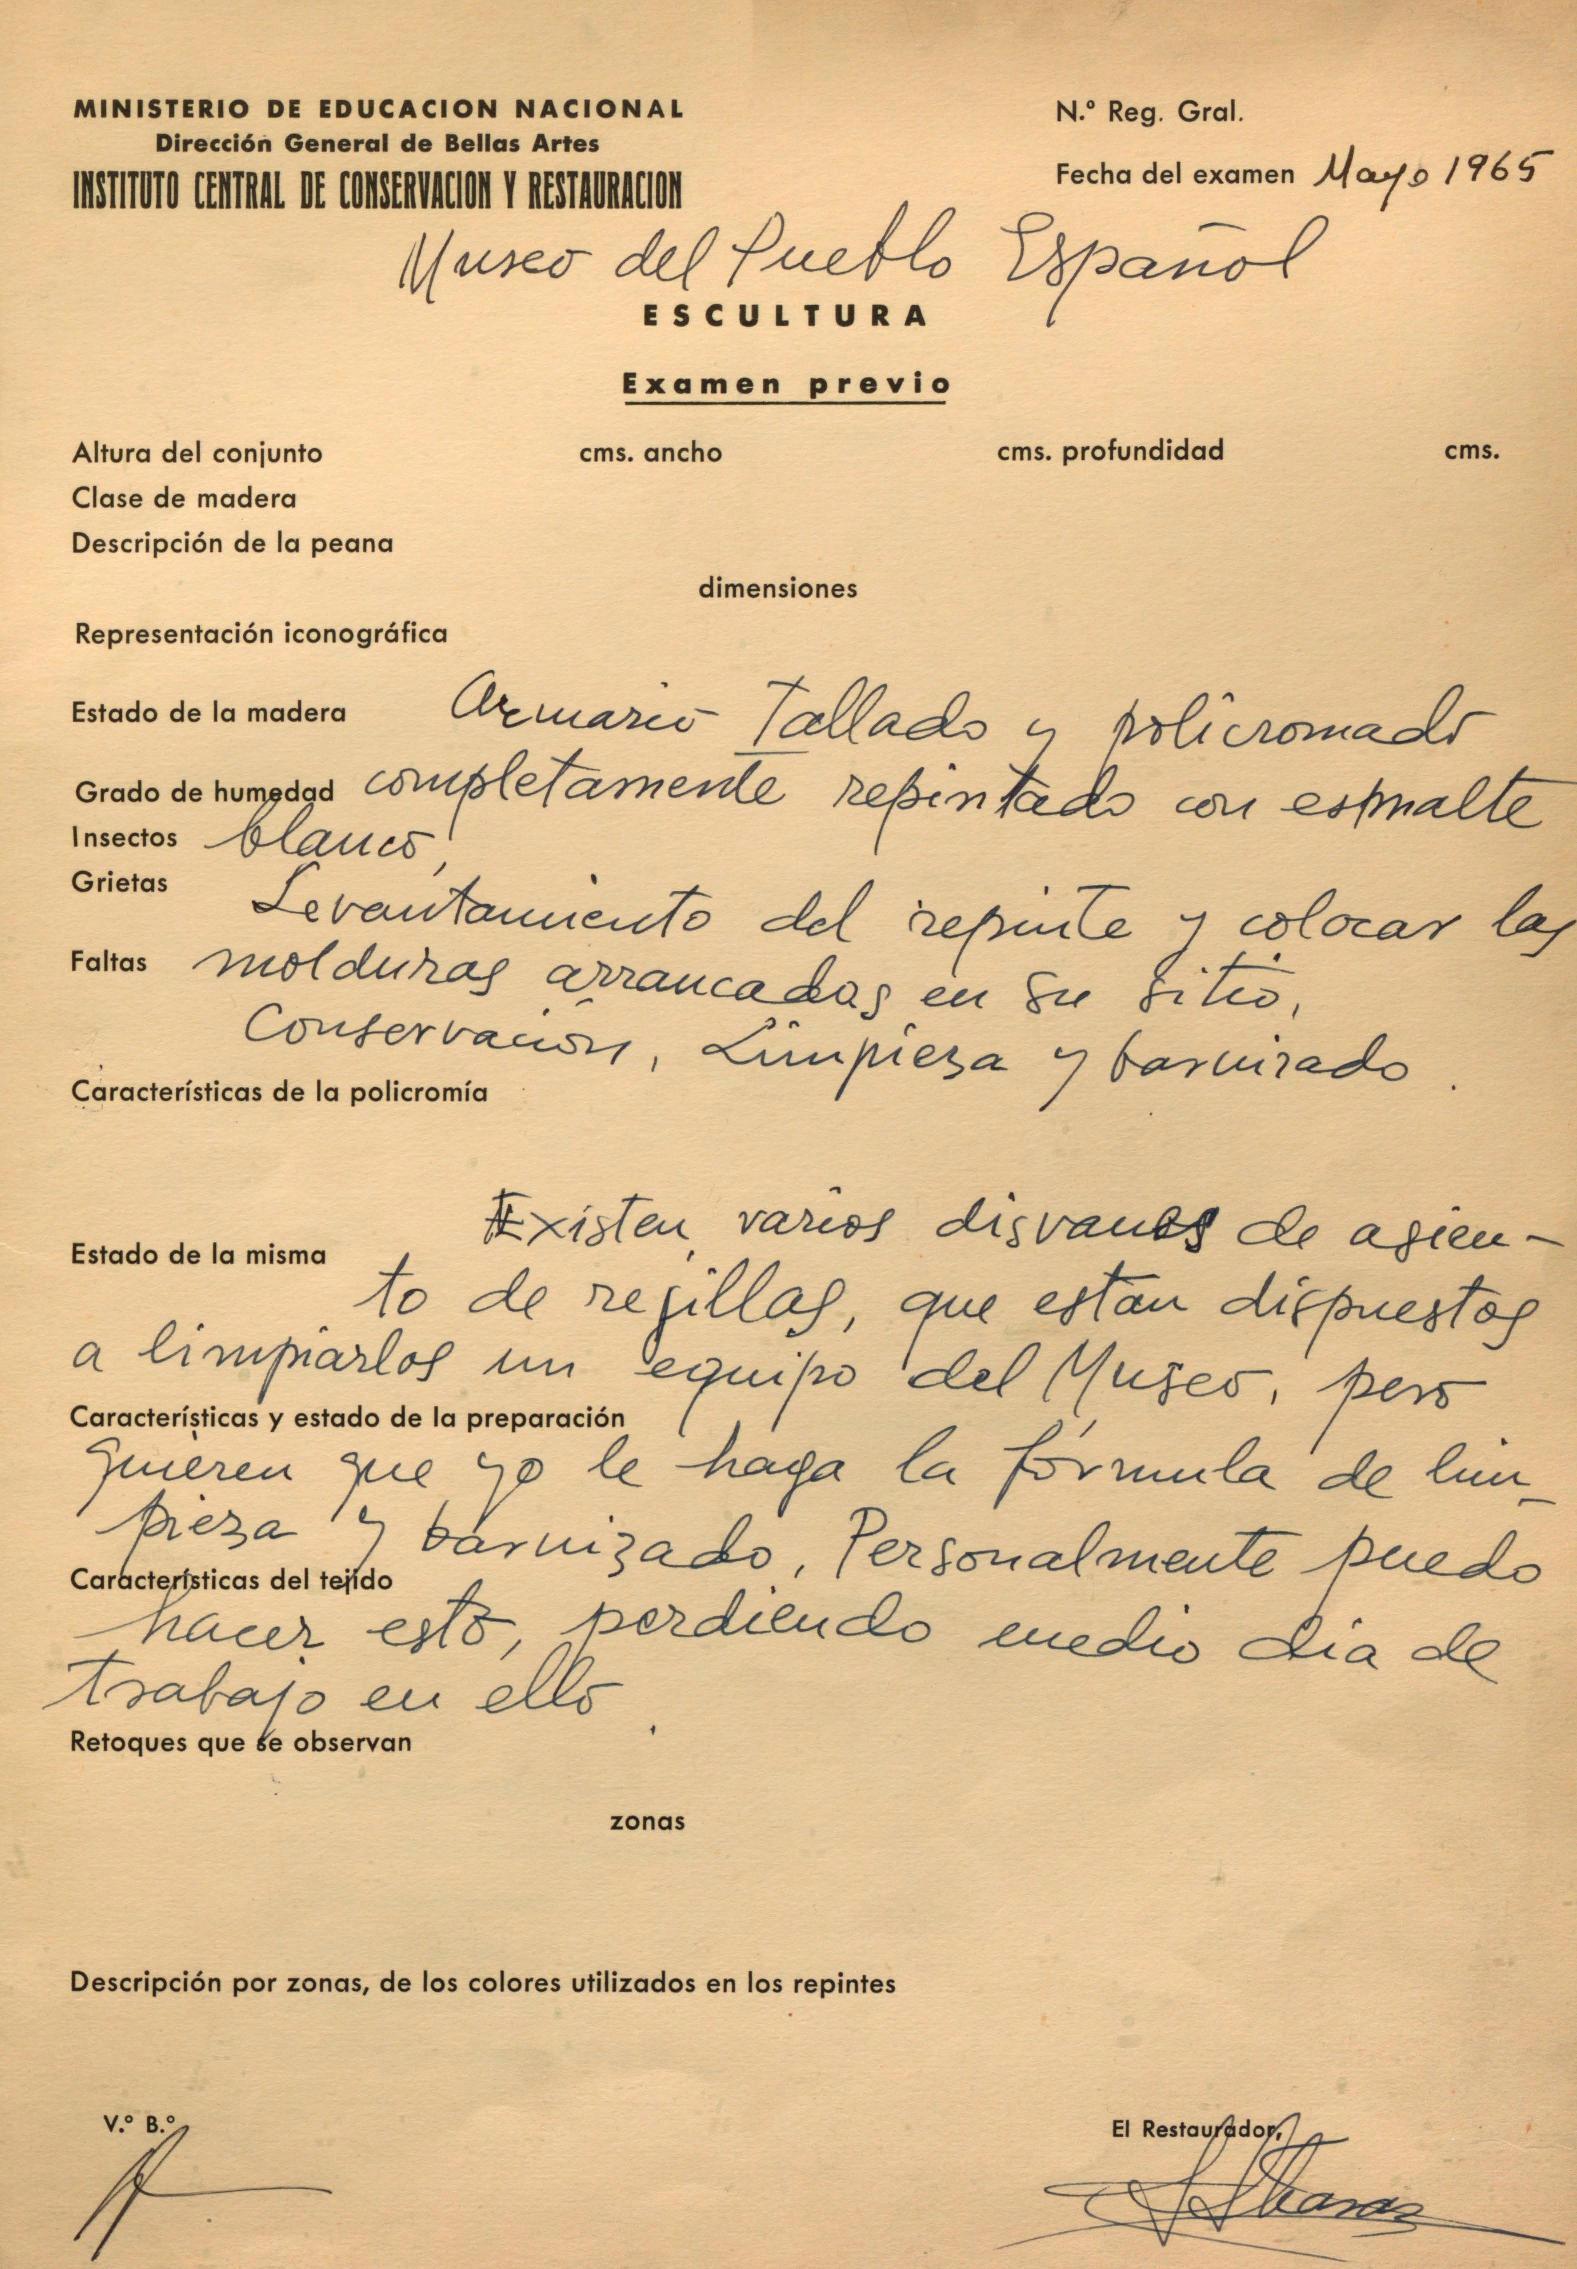 MINISTERIO DE EDUCACION NACIONAL
Dirección General de Bellas Artes
INSTITUTO CENTRAL DE CONSERVACION Y RESTAURACION
N.º Reg. Gral.
Fecha del examen Mayo 1965
Museo del Pueblo Español
ESCULTURA
Examen previo
Altura del conjunto cms. ancho cms. profundidad cms.
Clase de madera
Descripción de la peana
dimensiones
Representación iconográfica
Estado de la madera Armario Tallado y policromado
Grado de humedad completamente repintado con esmalte
Insectos blanco,
Grietas Levantamiento del repinte y colocar las
Faltas molduras arrancadas en su sitio,
Conservación, Limpieza y barnizado.
Características de la policromía
Existen varios disvanes de asien-
Estado de la misma
to de rejillas, que estan dispuestos
a limpiarlos un equipo del Museo, pero
Características y estado de la preparación
quieren que yo le haga la fórmula de lim-
pieza y barnizado, Personalmente puedo
Características del tejido
hacer esto, perdiendo medio dia de
trabajo en ello.
Retoques que se observan
zonas
Descripción por zonas, de los colores utilizados en los repintes
V.º B.º
El Restaurador,